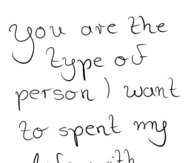 you are the
type of
person I want
to spent my